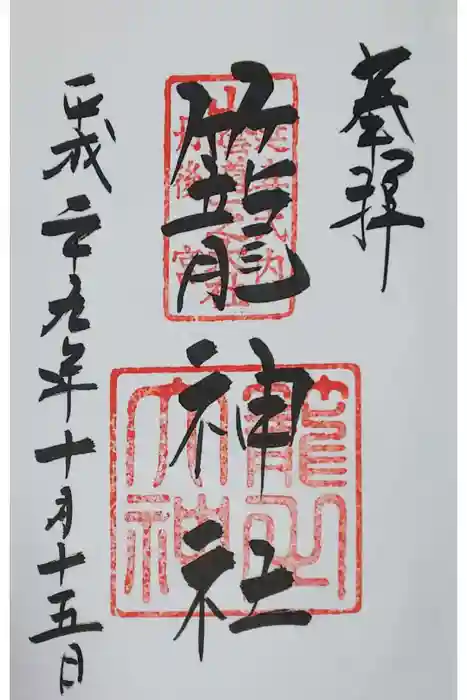 奉拝
籠神社
籠之
大神
平成二十九年十月十五日